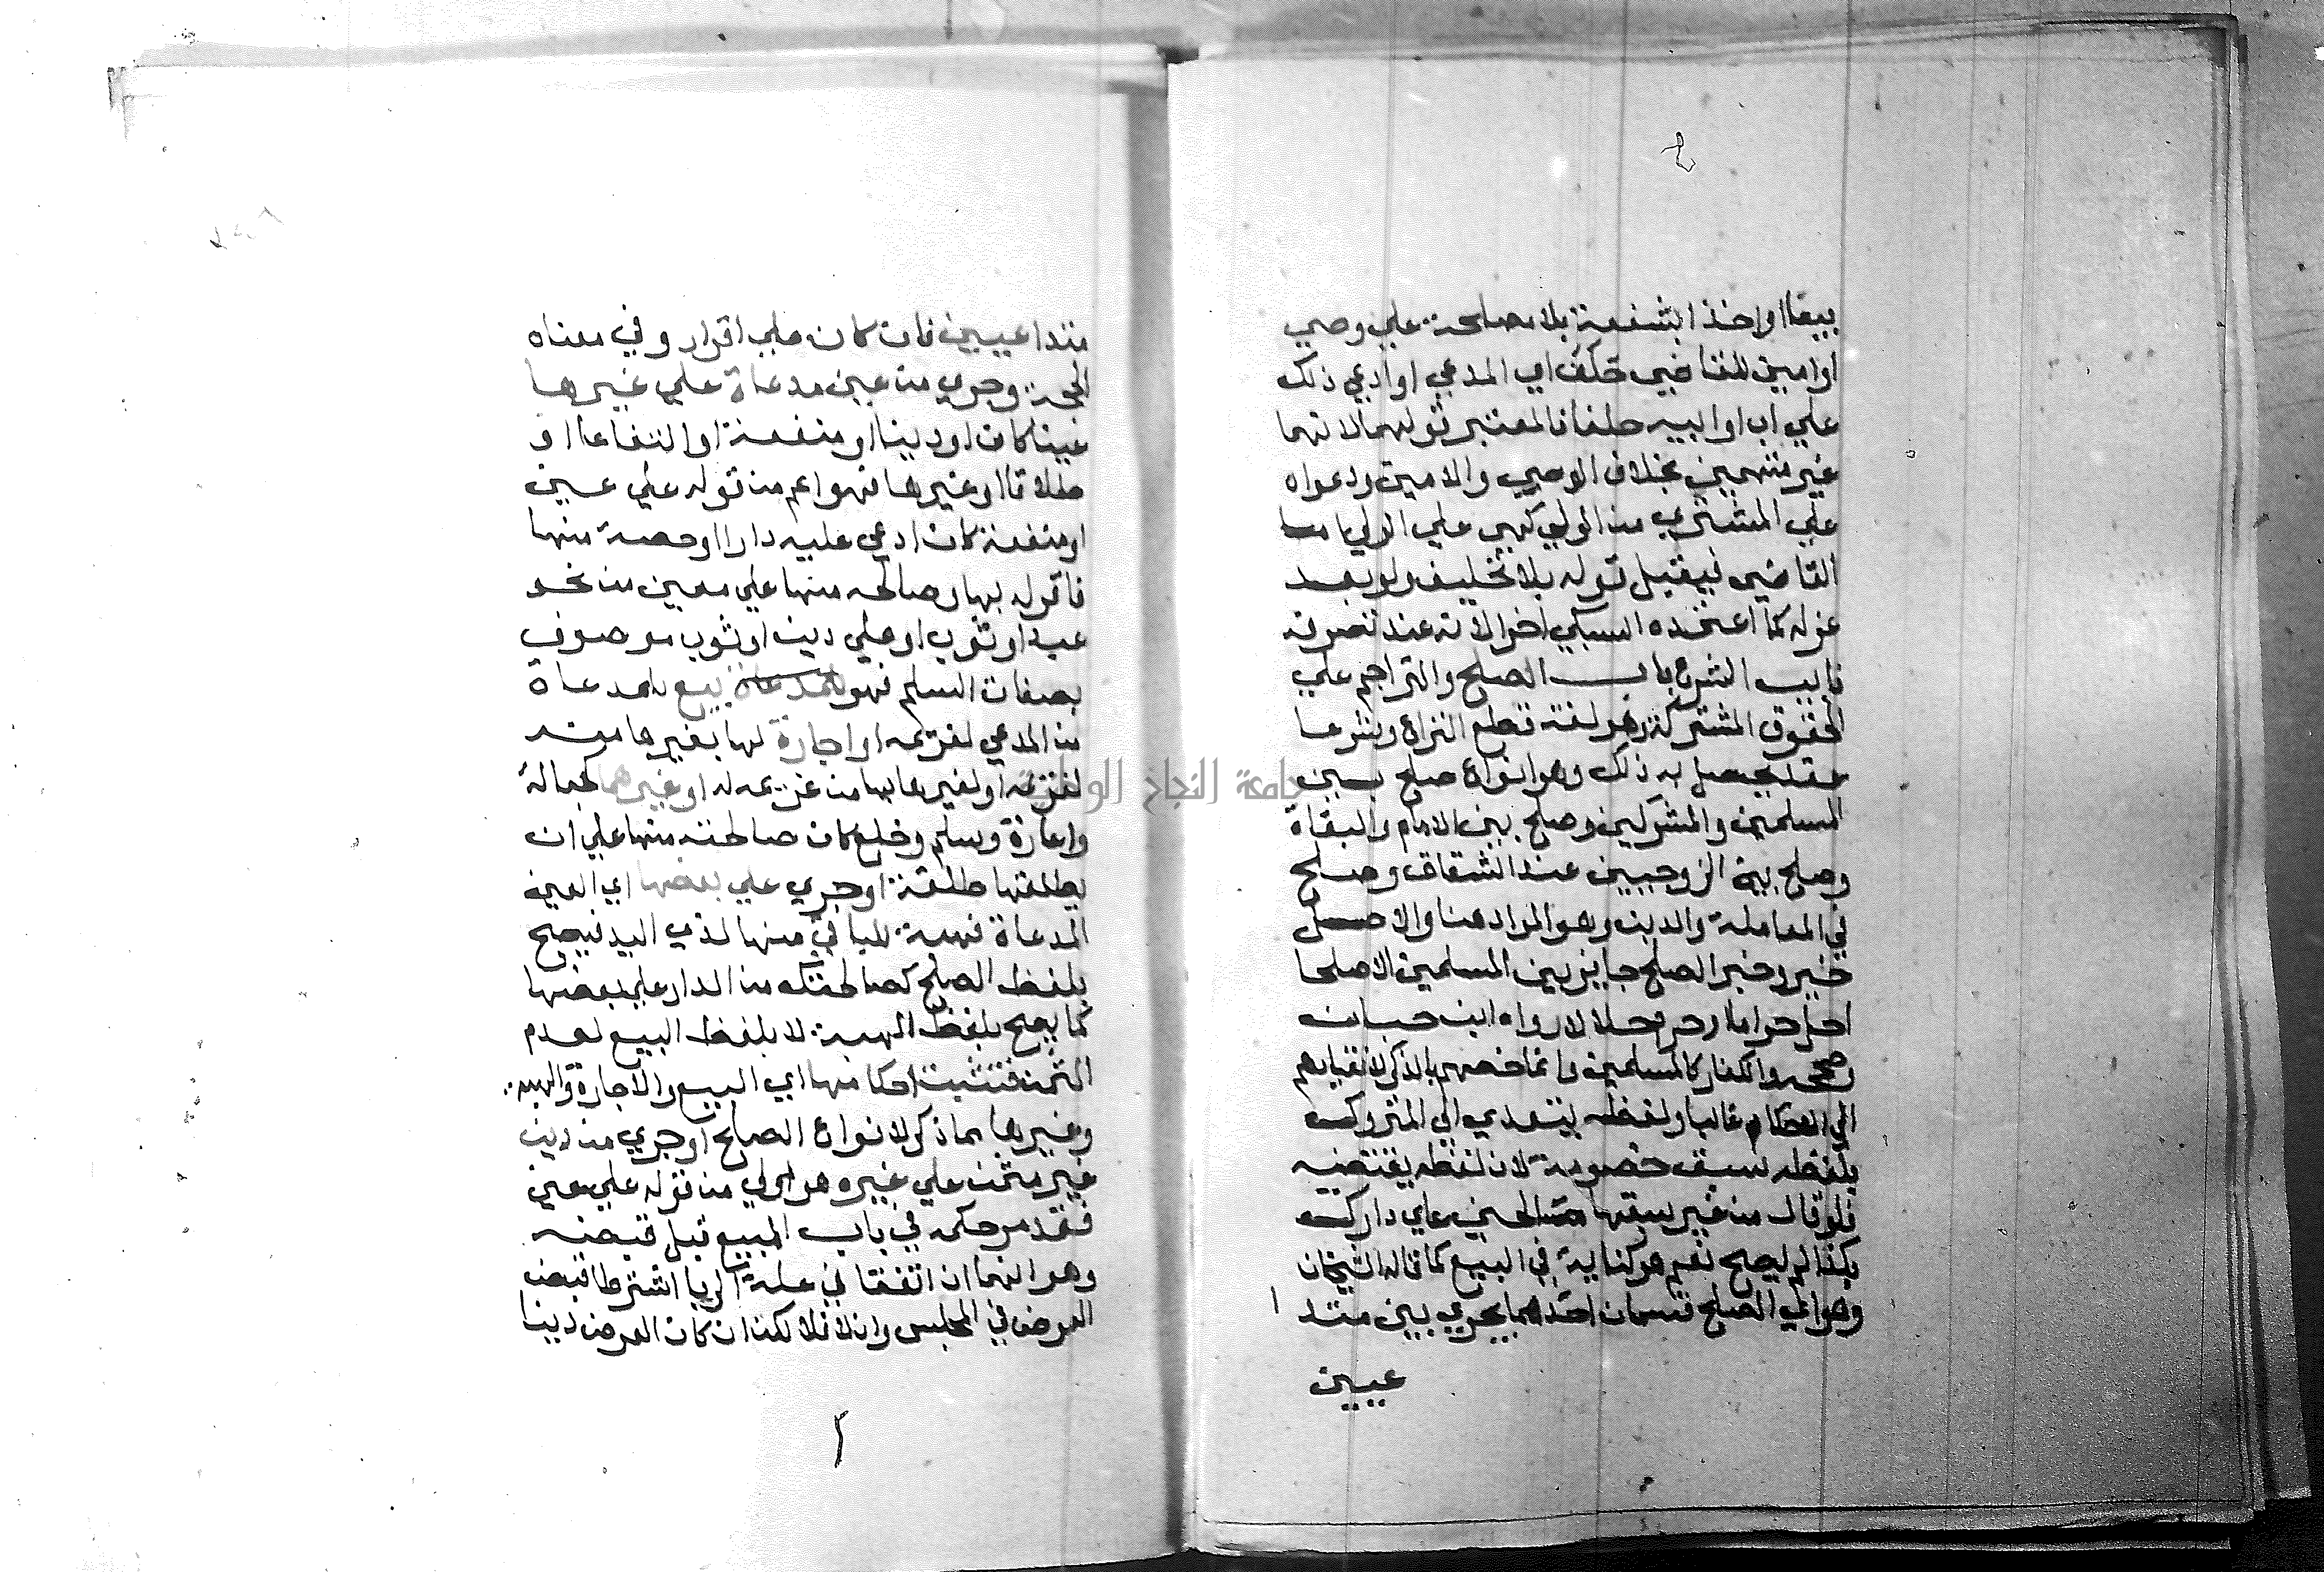 بيعا او اخذ الشفعة بلا مصلحة علي وصي
او امين للقاضي حلف اي المدعي او ادعي ذلك
علي اب او ابيه حلفا فالمعتبر قولهما لانهما
غير متهمين بخلاف الوصي والامين ودعواه
علي المشتري من الولي كهي علي الولي اما
القاضي فيقبل قوله بلا تحليف ولو بعد
عزله كما اعتمده السبكي اخرا لانه عند تصرفه
نايب الشرع باب الصلح والتزاحم علي
الحقوق المشتركة وهو لغة قطع النزاع وشرعا
عقد يحصل به ذلك وهو انواع صلح بين
المسلمين والمشركين وصلح بين الامام والبغاة
وصلح بين الزوجيين عند الشقاق وصلح
في المعاملة والدين وهو المراد هنا والاصل
خير وخبر الصلح جايز بين المسلمين الا صلحا
احل حراما او حرم حلالا رواه ابن حبان
وصححه والكفار كالمسلمين وانما خصهم بالذكر لانقيادهم
الي الاحكام غالبا ولفظه يتعدي الي المتروك
بلفظه سبق خصومة لان لفظه يقتضيه
فلو قال من غير سبقها صالحني علي دارك
بكذا لم يصح نعم هو كناية في البيع كما قاله الشيخان
وهو اي الصلح قسمان احدهما يجري بين متد
عيين
متداعيين فان كان علي اقرار وفي معناه
الحجة وجري من عين مدعاة علي غيرها
عينا كان او دينا او منفعة او انتفاعا او
طلاقا او غيرها فهو اعم من قوله علي عين
او منفعة كان ادعي عليه دارا او حصة منها
فاقر له بها وصالحه منها علي معين من نحو
عبد او ثوب او علي دين او ثوب موصوف
بصفات السلم فهو للمدعاة بيع للمدعاة
من المدعي لغريمه او اجارة لها بغيرها منه
لغريمه او لغيرها بها من غريمه له او غيرهما كجعالة
واعارة وسلم وخلع كان صالحته منها علي ان
يطلقها طلقة او جري علي بعضها اي العين
المدعاة فهبة للباقي منها لذي اليد فيصح
بلفظ الصلح كصالحتك من الدار علي بعضها
كما يصح بلفظ الهبة لا بلفظ البيع لعدم
الثمن فتثبت احكامها اي البيع والاجارة والهبة
وغيرها بما ذكر لانواع الصلح او جري من دين
غير مثمن علي غيره هو اولي من قوله علي عين
فقد مر حكمه في باب المبيع قبل قبضه
وهو انهما ان اتفقا في علة الربا اشترط قبض
العوض في المجلس والا فلا لكن ان كان العوض دينا